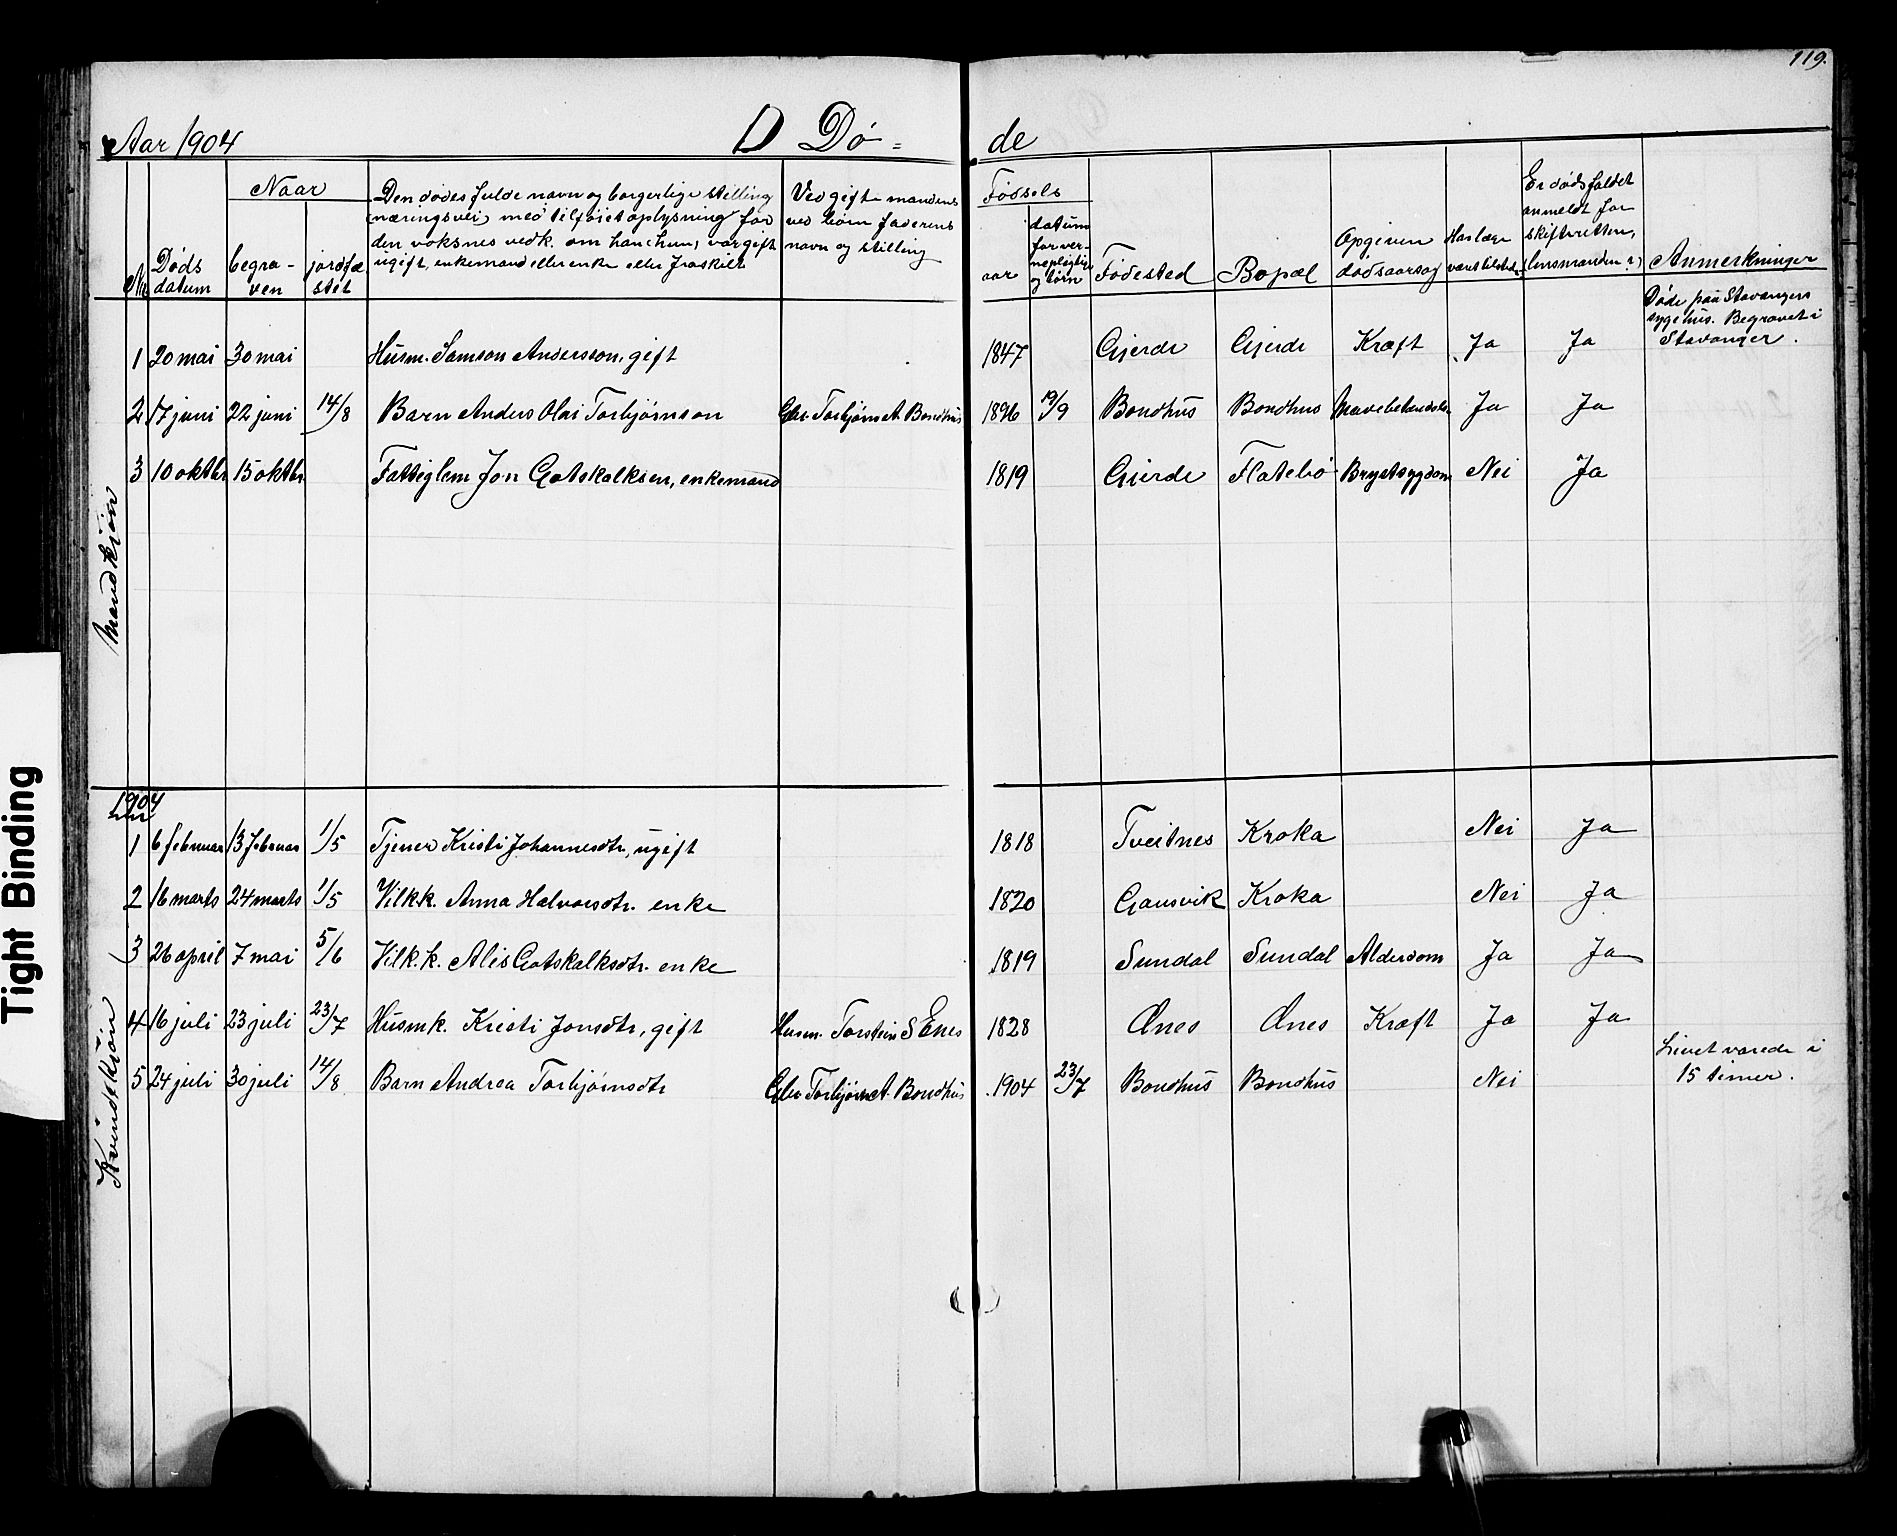 119.
Aar 1904 D Dø= de
Naar
Døds datum
begra-ven
jordfæstet
Den dødes fulde navn og borgerlige stilling
(næringsvei) med tilføiet oplysning for
den voksnes vedk. om han (hun) var gift
ugift, enkemand eller enke eller fraskilt
Ved gifte mandens
ved børn faderens
navn og stilling
Fødsels
aar
datum for vernepligtige og børn
Fødested
Bopæl
Opgiven dødsaarsag
Har læge været tilstede
Er dødsfaldet
anmeldt for
skifteretten,
(lensmanden?)
Anmerkninger
Mandkjön
1 20 mai 30 mai Husm. Samson Andersson, gift 1847 Gjerde Gjerde Kræft Ja Ja Døde paa Stavangers
sygehus. Begravet i
Stavanger.
2 17 juni 22 juni 14/8 Barn Anders Olai Torbjørnson Gbr. Torbjørn A. Bondhus 1896 19/9 Bondhus Bondhus Ja Ja
3 10 oktbr 15 oktbr. Fattiglem Jon Gotskalksen, enkemand 1819 Gjerde Flatebø Brystsygdom Nei Ja
1904
Kvindekjön
1 6 februar 13 februar 1/5 Tjener Kristi Johannesdtr, ugift 1818 Tveitnes Kroka Nei Ja
2 16 marts 24 marts 1/5 Vilk.k. Anna Halvorsdtr. enke 1820 Gausvik Kroka Nei Ja
3 26 april 7 mai 5/6 Vilk.k. Alis Gotskalksdtr. enke 1819 Sundal Sundal Alderdom Ja Ja
4 16 juli 23 juli 23/7 Husmk. Kristi Jonsdtr, gift Husm. Torstein S Enes 1828 Ænes Ænes Kræft Ja Ja
5 24 juli 30 juli 14/8 Barn Andrea Torbjørnsdtr Gbr. Torbjørn A. Bondhus 1904 23/7 Bondhus Bondhus Nei Livet varede i
15 timer.
Tight Binding